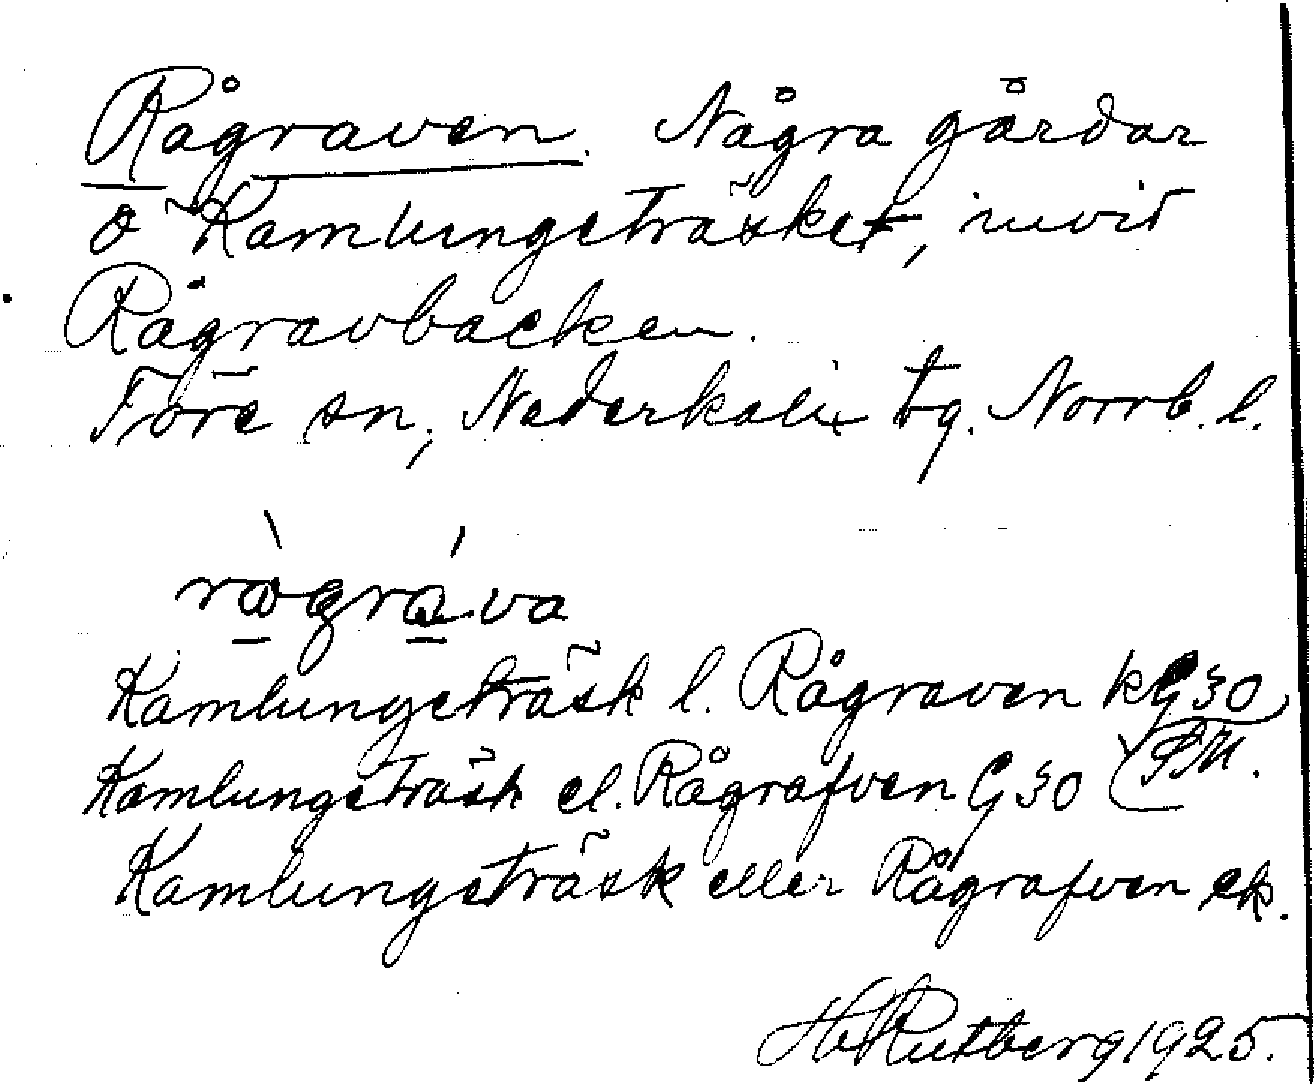 Rågraven. Några gårdar
ö Kamlungeträsket, invid
Rågravbacken.
Töre sn, Nederkalix tg. Norrb. l.
Kamlungeträsk l. Rågraven kG30
Kamlungeträsk el. Rågrafven G30
Kamlungeträsk eller Rågrafven ek.
Rutberg 1925.